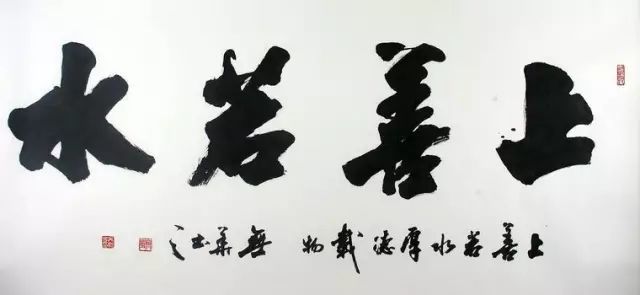 上善若水
上善若水厚德載物 無華書之